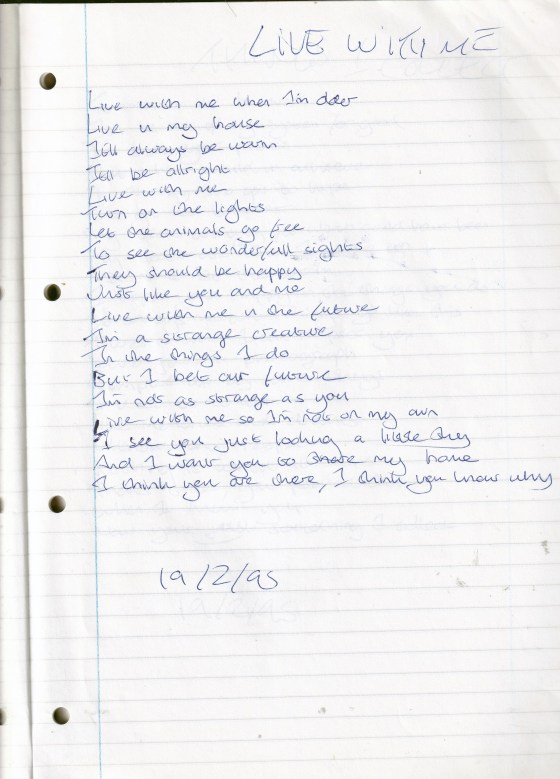 LIVE WITH ME
Live with me when I'm older
Live in my house
It'll always be warm
It'll be allright
Live with me
Turn on the lights
Let the animals go free
To see the wonderfull sights
They should be happy
Just like you and me
Live with me in the future
I'm a strange creature
In the things I do
But I bet our future
I'm not as strange as you
Live with me so I'm not on my own
I see you just looking a little shy
And I want you to share my home
I think you are there, I think you know why
19/2/95